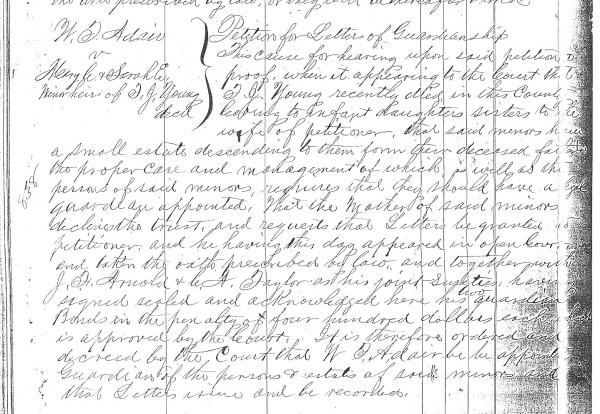 W. T. Adair
v
Minor heirs of T. J. Young
decd
Petition for Letters of Guardianship
This cause for hearing upon said petition
proof, when it appearing to the Court th
T. J. Young recently died in this County
leaving to Infant daughters sisters to the
wife of petitioner, that said minors have
a small estate descending to them form their deceased fa
the proper care and management of which as well as the
persons of said minors, requires that they should have a
guardian appointed, That the Mother of said minors
declines the trust, and requests that Letters be granted to
petitioner, and he having this day appeared in open Court
and taken the oath prescribed by law, and together with
J. F. Arnold & A. Taylor as his joint Sureties, having
signed sealed and acknowledged here his guardian
Bonds in the penalty of four hundred dollars each
is approved by the Court. It is therefore ordered and
decreed by the Court that W. T. Adair be appoint
Guardian of the persons & estate of said minors and
that Letters issue and be recorded.
558